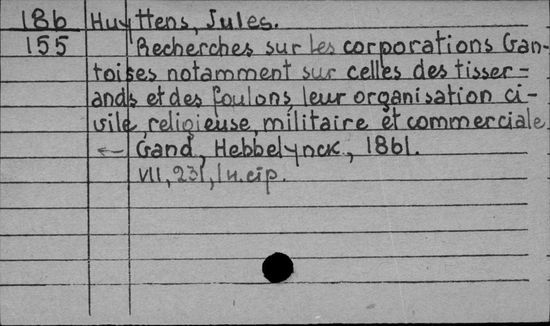 186 Huyttens, Jules.
155 Recherches sur les corporations Gan-
toises notamment sur celles des tisser=
ands et des foulons, leur organisation ci-
vile, religieuse, militaire et commerciale,
← Gand, Hebbelynck, 1861.
VII, 231, 1 н. стр.